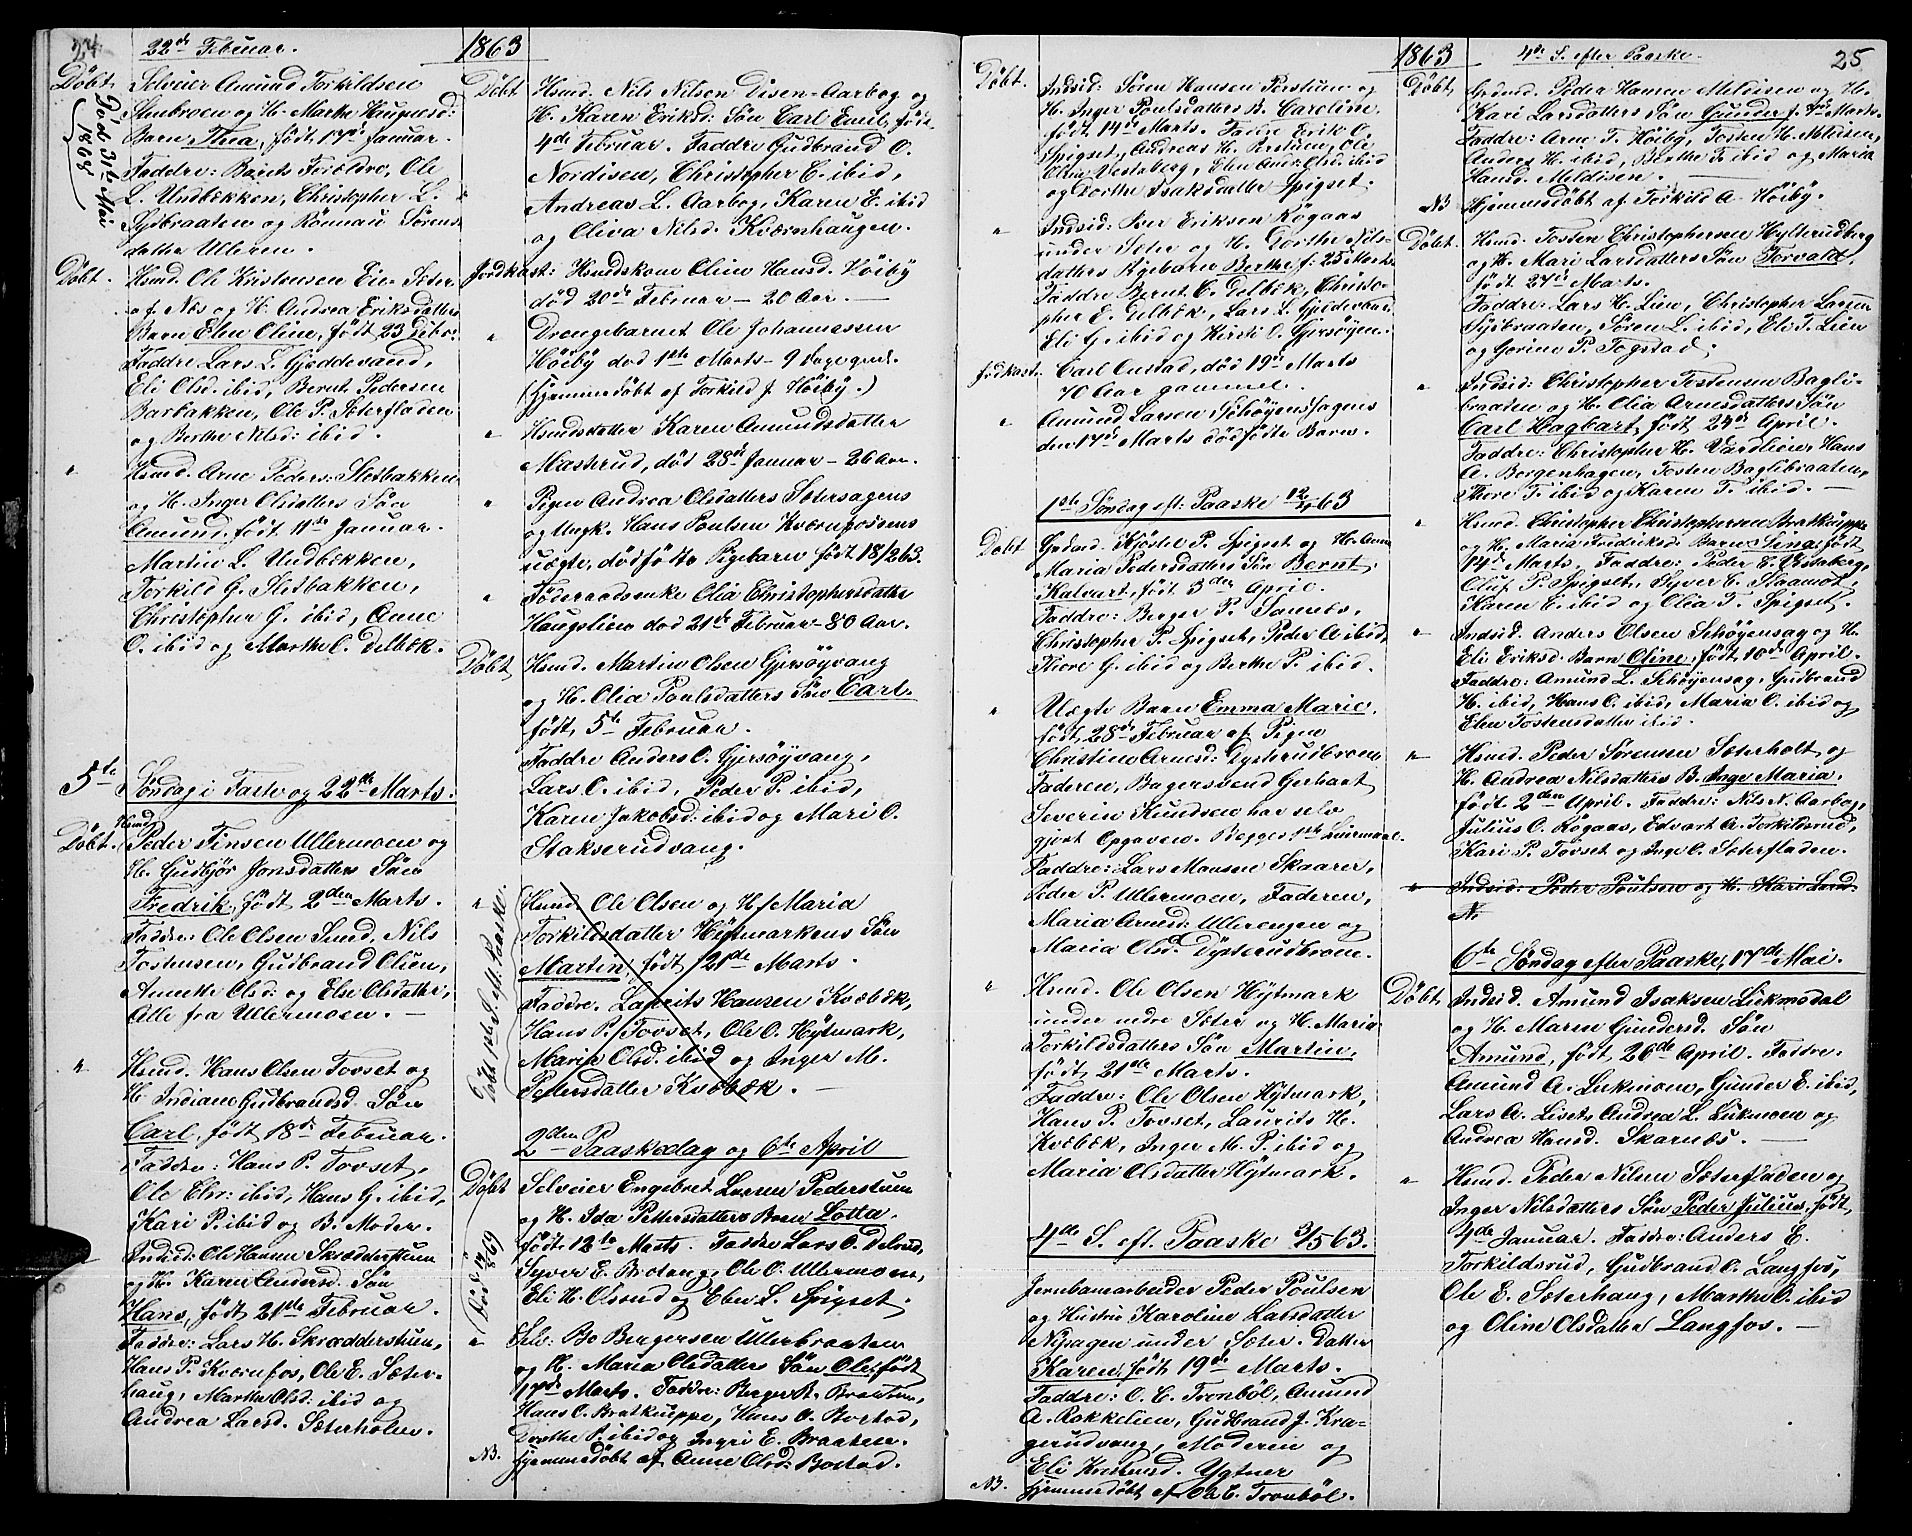 24.
22de Februar.
1863
Döbt.
Selveier Amund Torkildsen
Stenbroen og H. Marthe Haagensd:
Barn Thea, født 17de Januar.
Faddre: Barnets Forældre, Ole
L. Undbekken, Christopher L.
Sysbraaten og Rönnau Sörens-
datter Ulleren.
Död 31te Mai
1868
Döbt.
Hsmd. Ole Kristensen Eie Sæter
af Næs og H. Andrea Eriksdatters
Barn Elen Oline, født 23 Debr:
Faddre Lars L. Gjeddevand,
Eli Olsd. ibid, Bernt Pedersen
Barbakken, Ole P. Sæterfladen
og Berthe Nilsd: ibid.
"
Hsmd. Arne Peders: Sletbakken
og H. Inger Olsdatters Sön
Amund, født 11te Januar.
Martin L. Undbekken,
Torkild G. Sletbakken,
Christopher G. ibid, Anne
O. ibid og Marthe C. Delbæk.
5te Söndag i Faste og 22de Marts.
Döbt.
Hsmd.
Peder Finsen Ullermoen og
H. Gudbjör Jonsdatters Sön
Fredrik, født 2den Marts.
Faddre: Ole Olsen Smed, Nils
Tostensen, Gudbrand Olsen,
Annette Olsd: og Else Olsdatter,
Alle fra Ullermoen.
"
Hsmd. Hans Olsen Tovset og
H. Indiane Gudbrandsd. Sön
Carl, født 18de Februar.
Faddre: Hans P. Tovset,
Ole Chr: ibid, Hans G. ibid,
Kari P. ibid og B. Moder.
Indsid: Ole Hansen Skrædderstuen
og H. Karen Andersd. Sön
Hans, født 21de Februar.
Faddre: Lars H. Skrædderstuen,
Hans P. Kværnfos, Ole E. Sæter-
haug, Marthe Olsd: ibid og
Andrea Larsd. Sæterholen.
Döbt
Hsmd. Nils Nilsen Disen-Aarbog og
H. Karen Eriksd: Sön Carl Emil, født
4de Februar. Faddre Gudbrand O.
Nordisen, Christopher E. ibid,
Andreas L. Aarbog, Karen E. ibid
og Oliva Nilsd. Kværnhaugen.
Jordkast:
Hsmdskone Oline Hansd. Höiby
död 20de Februar - 20 Aar.
"
Drengebarnet Ole Johannessen
Höiby död 1ste Marts - 9 Dage gml.
(hjemmedöbt af Torkild J. Höiby.)
"
Hsmdsdatter Karen Amundsdatter
Masterud, död 28de Januar - 26 Aar.
"
Pigen Andrea Olsdatters Sætersagens
og Ungk. Hans Poulsen Kværnfossens
uægte, dödfödte Pigebarn født 18/2 63.
"
Föderaadsenke Olia Christophersdatter
Haugslien död 21de Februar - 80 Aar.
Döbt
Hsmd. Martin Olsen Gjersöyvang
og H. Olia Poulsdatters Sön Carl.
født 5te Februar.
Faddre Anders O. Gjersöyvang,
Lars O. ibid, Peder P. ibid,
Karen Jakobsd: ibid og Mari O.
Stakserudvang.
"
Döbt 1ste S. eft. Paaske.
Hsmd. Ole Olsen og H. Maria
Torkildsdatter Høytmarkens Sön
Martin, født 21de Marts.
Faddre. Laurits Hansen Kvæbæk,
Hans P. Tovset, Ole O. Høytmark,
Maria Olsd: ibid og Inger M.
Pettersdatter Kvæbæk.
2den Paaskedag og 6te April
Döbt
Död 12/7 69
Selveier Engebret Larsen Pederstuen
og H. Ida Pettersdatters Barn Lotta.
født 12te Marts. Faddre Lars O. Delsrud,
Syver E. Brotang, Ole O. Ullermoen,
Eli H. Olsrud og Eben L. Spigset.
"
Selv: Bo Bergersen Ullerbraaten
og H. Maria Olsdatters Sön Ole, født
17de Marts. Faddre: Berger B. Braaten,
Hans O. Bratknippe, Hans O. Borstad,
Dorthe P. ibid og Ingri E. Braaten.
NB.
Hjemmedöbt af Anne Olsd: Borstad.
1863
4de S. efter Paaske.
25
Döbt.
Indsid: Sören Hansen Perstuen og
H. Inger Poulsdatters B. Caroline.
født 14de Marts. Faddre Erik O.
Spigset, Andreas H. Perstuen, Ole
Olsen Vestsberg, Elen Andr. Olsd. ibid
og Dorthe Isaksdatter Spigset.
"
Indsid: Iver Eriksen Rögaas
under Sæter og H. Dorthe Nils-
datters Pigebarn Berthe f: 25 Marts.
Faddre Bernt C. Delbæk, Christo-
pher E. Delbæk, Lars L. Gjeddevand,
Eli G. ibid og Kirsti O. Gjersöyen.
Jordkast.
Carl Custad, död 19de Marts
70 Aar gammel.
"
Amund Larsen Schöyenssagens
den 17de Marts dödfödte Barn.
1ste Söndag eft: Paaske 12/4 63
Döbt
Gaard. Kjöstel P. Spigset og H. Anne
Maria Pedersdatters Sön Bernt
Kalvart, født 3den April.
Faddre: Berger P. Samnes,
Christopher P. Spigset, Peder A. ibid,
Thore G. ibid og Berthe P. ibid.
"
Uægte Barn Emma Marie.
født 28de Februar af Pigen
Christine Arnesd: Dysterudbroen
Faderen, Bagersvend Gerhart
Severin Knudsen har selv
gjort Opgaven. Begges 1ste Leiermaal.
Faddre: Lars Monsen Skaarer,
Peder P. Ullermoen, Faderen,
Maria Arnesd: Ullerengen og
Maria Olsd Dysterudbroen.
"
Hsmd. Ole Olsen Høytmark
under nedre Sæter og H. Maria
Torkildsdatters Sön Martin,
født 21de Marts.
Faddre: Ole Olsen Høytmark,
Hans P. Tovset, Laurits H.
Kvæbæk, Inger M. P. ibid og
Maria Olsdatter Høytmark.
4de S. eft. Paaske 3/5 63.
Jernbanearbeider Peder Poulsen
og Hustru Karoline Larsdatter
Nysagen under Sæter. Datter
Karen, født 19de Marts.
Faddre: O. E. Tronböl, Amund
A. Rokkelien, Gudbrand J. Kra-
gerudvang, Moderen og
Eli Kristensd. Ygtner
NB.
Hjemmedöbt af Ole E. Tronböl.
Döbt,
Grdmd. Peder Hansen Meldisen og H.
Kari Larsdatters Sön Gunder f. 4de Marts.
Faddre: Arne T. Höiby, Tosten H. Meldisen,
Anders H. ibid, Berthe P. ibid og Maria
Hansd. Meldisen.
NB
Hjemmedöbt af Torkild A. Höiby.
Döbt.
Hsmd. Tosten Christophersen Hylterudberg
og H. Mari Larsdatters Sön Torvald,
født 27de Marts.
Faddre: Lars H. Lien, Christopher Larsen
Sysbraaten, Sören L. ibid, Eli T. Lien
og Gorine P. Togstad.
"
Indsid: Christopher Tostensen Bagli-
braaden og H. Olia Arnesdatters Sön
Carl Hagbart, født 24de April.
Faddre: Christopher H. Vardlien, Hans
A. Borgenhagen, Tosten Baglibraaten,
Thore T. ibid og Karen T. ibid.
"
Hsmd. Christopher Christophersen Bratknippe
og H. Maria Fredriksd: Barn Lina, født
14de Marts. Faddre: Peder E. Vestsberg,
Oluf P. Spigset, Syver E. Slaamot,
Karen E. ibid og Olia T. Spigset.
"
Indsid. Anders Olsen Schöyensag og H.
Eli Eriksd. Barn Oline, født 10de April.
Faddre: Amund L. Schöyensag, Gudbrand
H. ibid, Hans O. ibid, Maria O. ibid og
Elen Tostensdatter ibid.
"
Hsmd. Peder Sörensen Sæterholt og
H. Andrea Nilsdatters B. Inge Maria.
født 2den April. Faddre: Nils N. Aarbog,
Julius O. Rögaas, Edvart A. Torkildsrud,
Kari P. Tovset og Inge O. Sæterfladen.
"
Indsid: Peder Poulsen og H. Kari Larsd.
N:
6te Söndag efter Paaske, 17de Mai.
Döbt,
Indsid. Amund Isaksen Liekmodal
og H. Maren Gundersd. Sön
Amund, født 26de April. Faddre.
Amund A. Liekmoen, Gunder E. ibid,
Lars A. Liset, Andrea L. Liekmoen og
Andrea Hansd. Skarnæs.
"
Hsmd. Peder Nilsen Sæterfladen og
Inger Nilsdatters Sön Peder Julius, født,
4de Januar. Faddre: Anders E.
Torkildsrud, Gudbrand O. Langfos,
Ole E. Sæterhaug, Marthe O. ibid
og Oline Olsdatter Langfos.